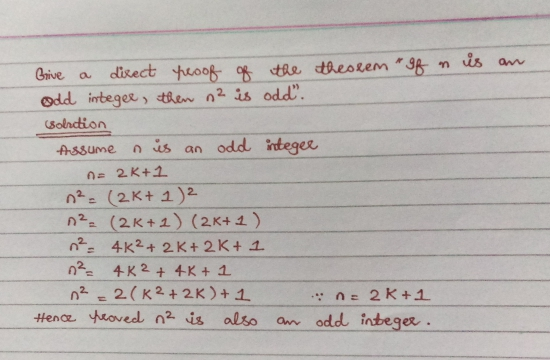 Give a direct proof of the theorem "If n is an
odd integer, then n² is odd".
Solution
Assume n is an odd integer
n = 2K+1
n² = (2K+1)²
n² = (2K+1) (2K+1)
n² = 4K² + 2K + 2K + 1
n² = 4K² + 4K + 1
n² = 2(K² + 2K) + 1 ∵ n = 2K+1
Hence proved n² is also an odd integer.